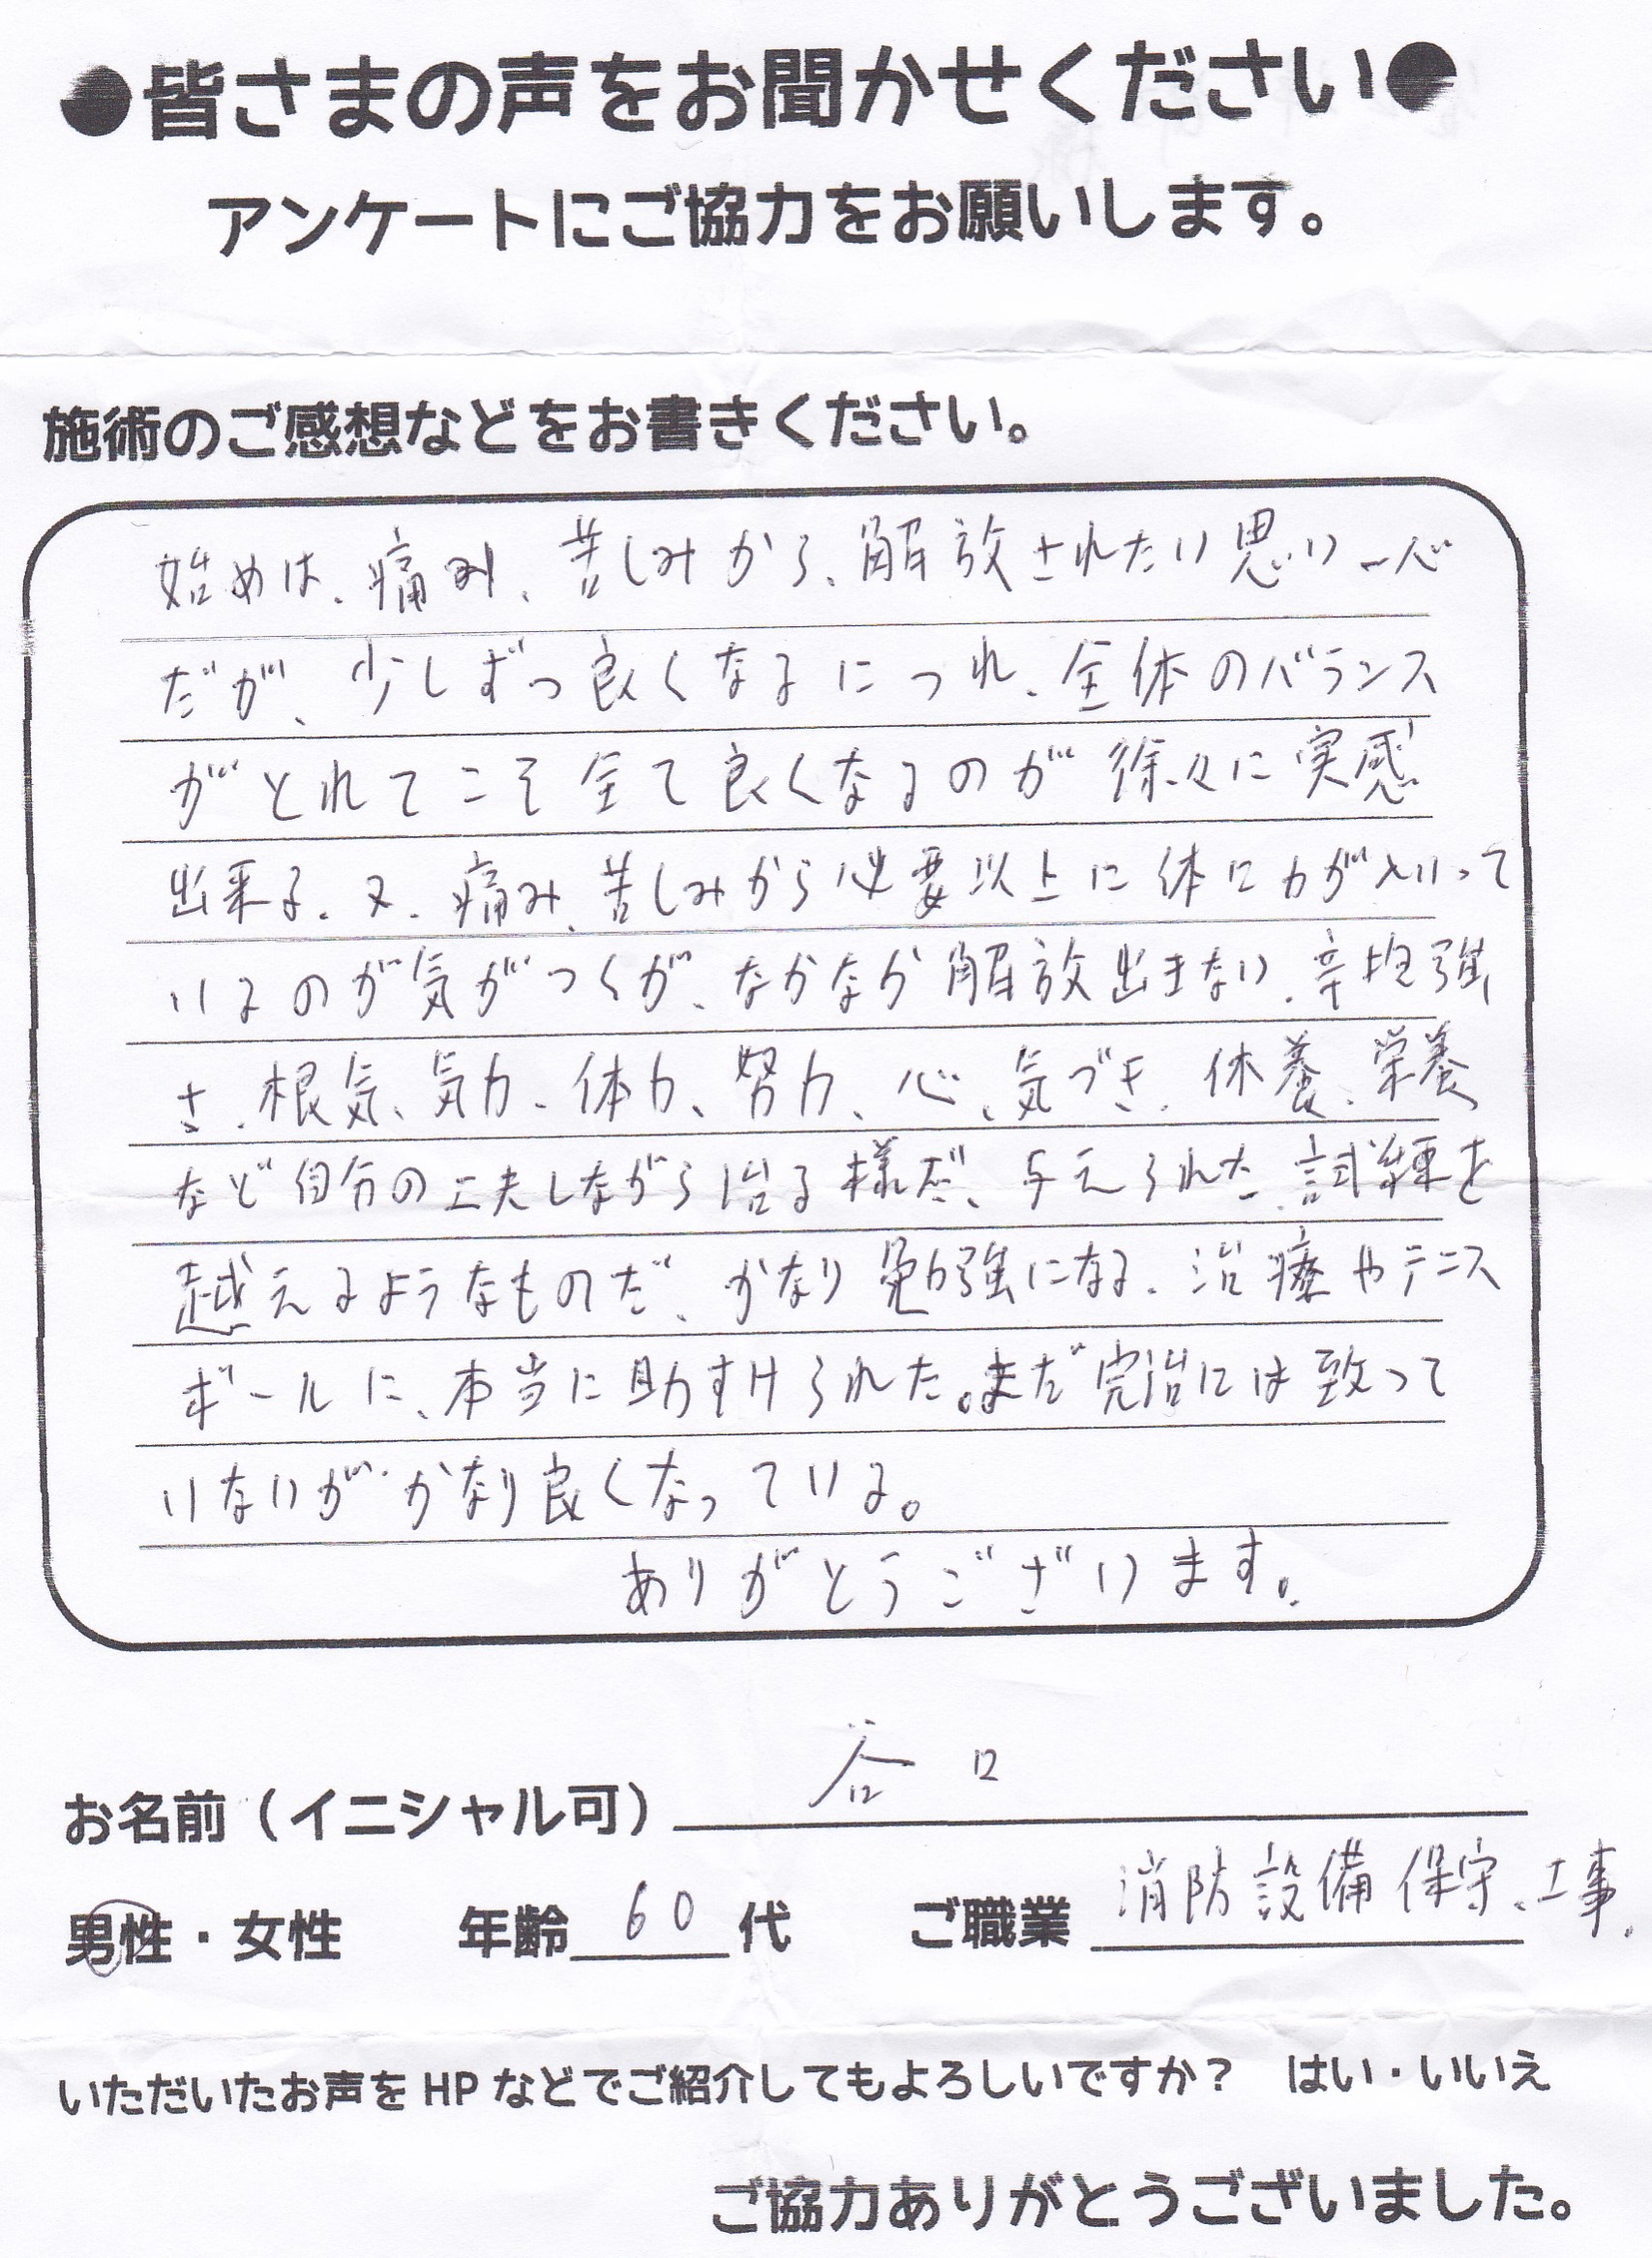 ●皆さまの声をお聞かせください●
アンケートにご協力をお願いします。
施術のご感想などをお書きください。
始めは、痛み、苦しみから、解放されたい思い一心
だが、少しずつ良くなるにつれ、全体のバランス
がとれてこそ全て良くなるのが徐々に実感
出来る。又、痛み、苦しみから必要以上に体に力が入いって
いるのが気がつくが、なかなか解放出きない。辛抱強
さ、根気、気力、体力、努力、心、気づき、休養、栄養
など自分の工夫しながら治る様だ、与えられた、試練を
越えるようなものだ、かなり勉強になる。治療やテニス
ボールに、本当に助すけられた。まだ完治には致って
いないが、かなり良くなっている。
ありがとうございます。
お名前（イニシャル可）谷口
男性・女性 年齢 60 代 ご職業 消防設備保守、工事。
いただいたお声を HP などでご紹介してもよろしいですか？ はい・いいえ
ご協力ありがとうございました。